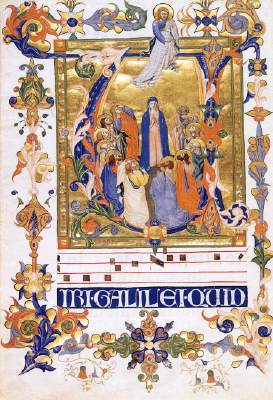 VIRI GALILEI QUID